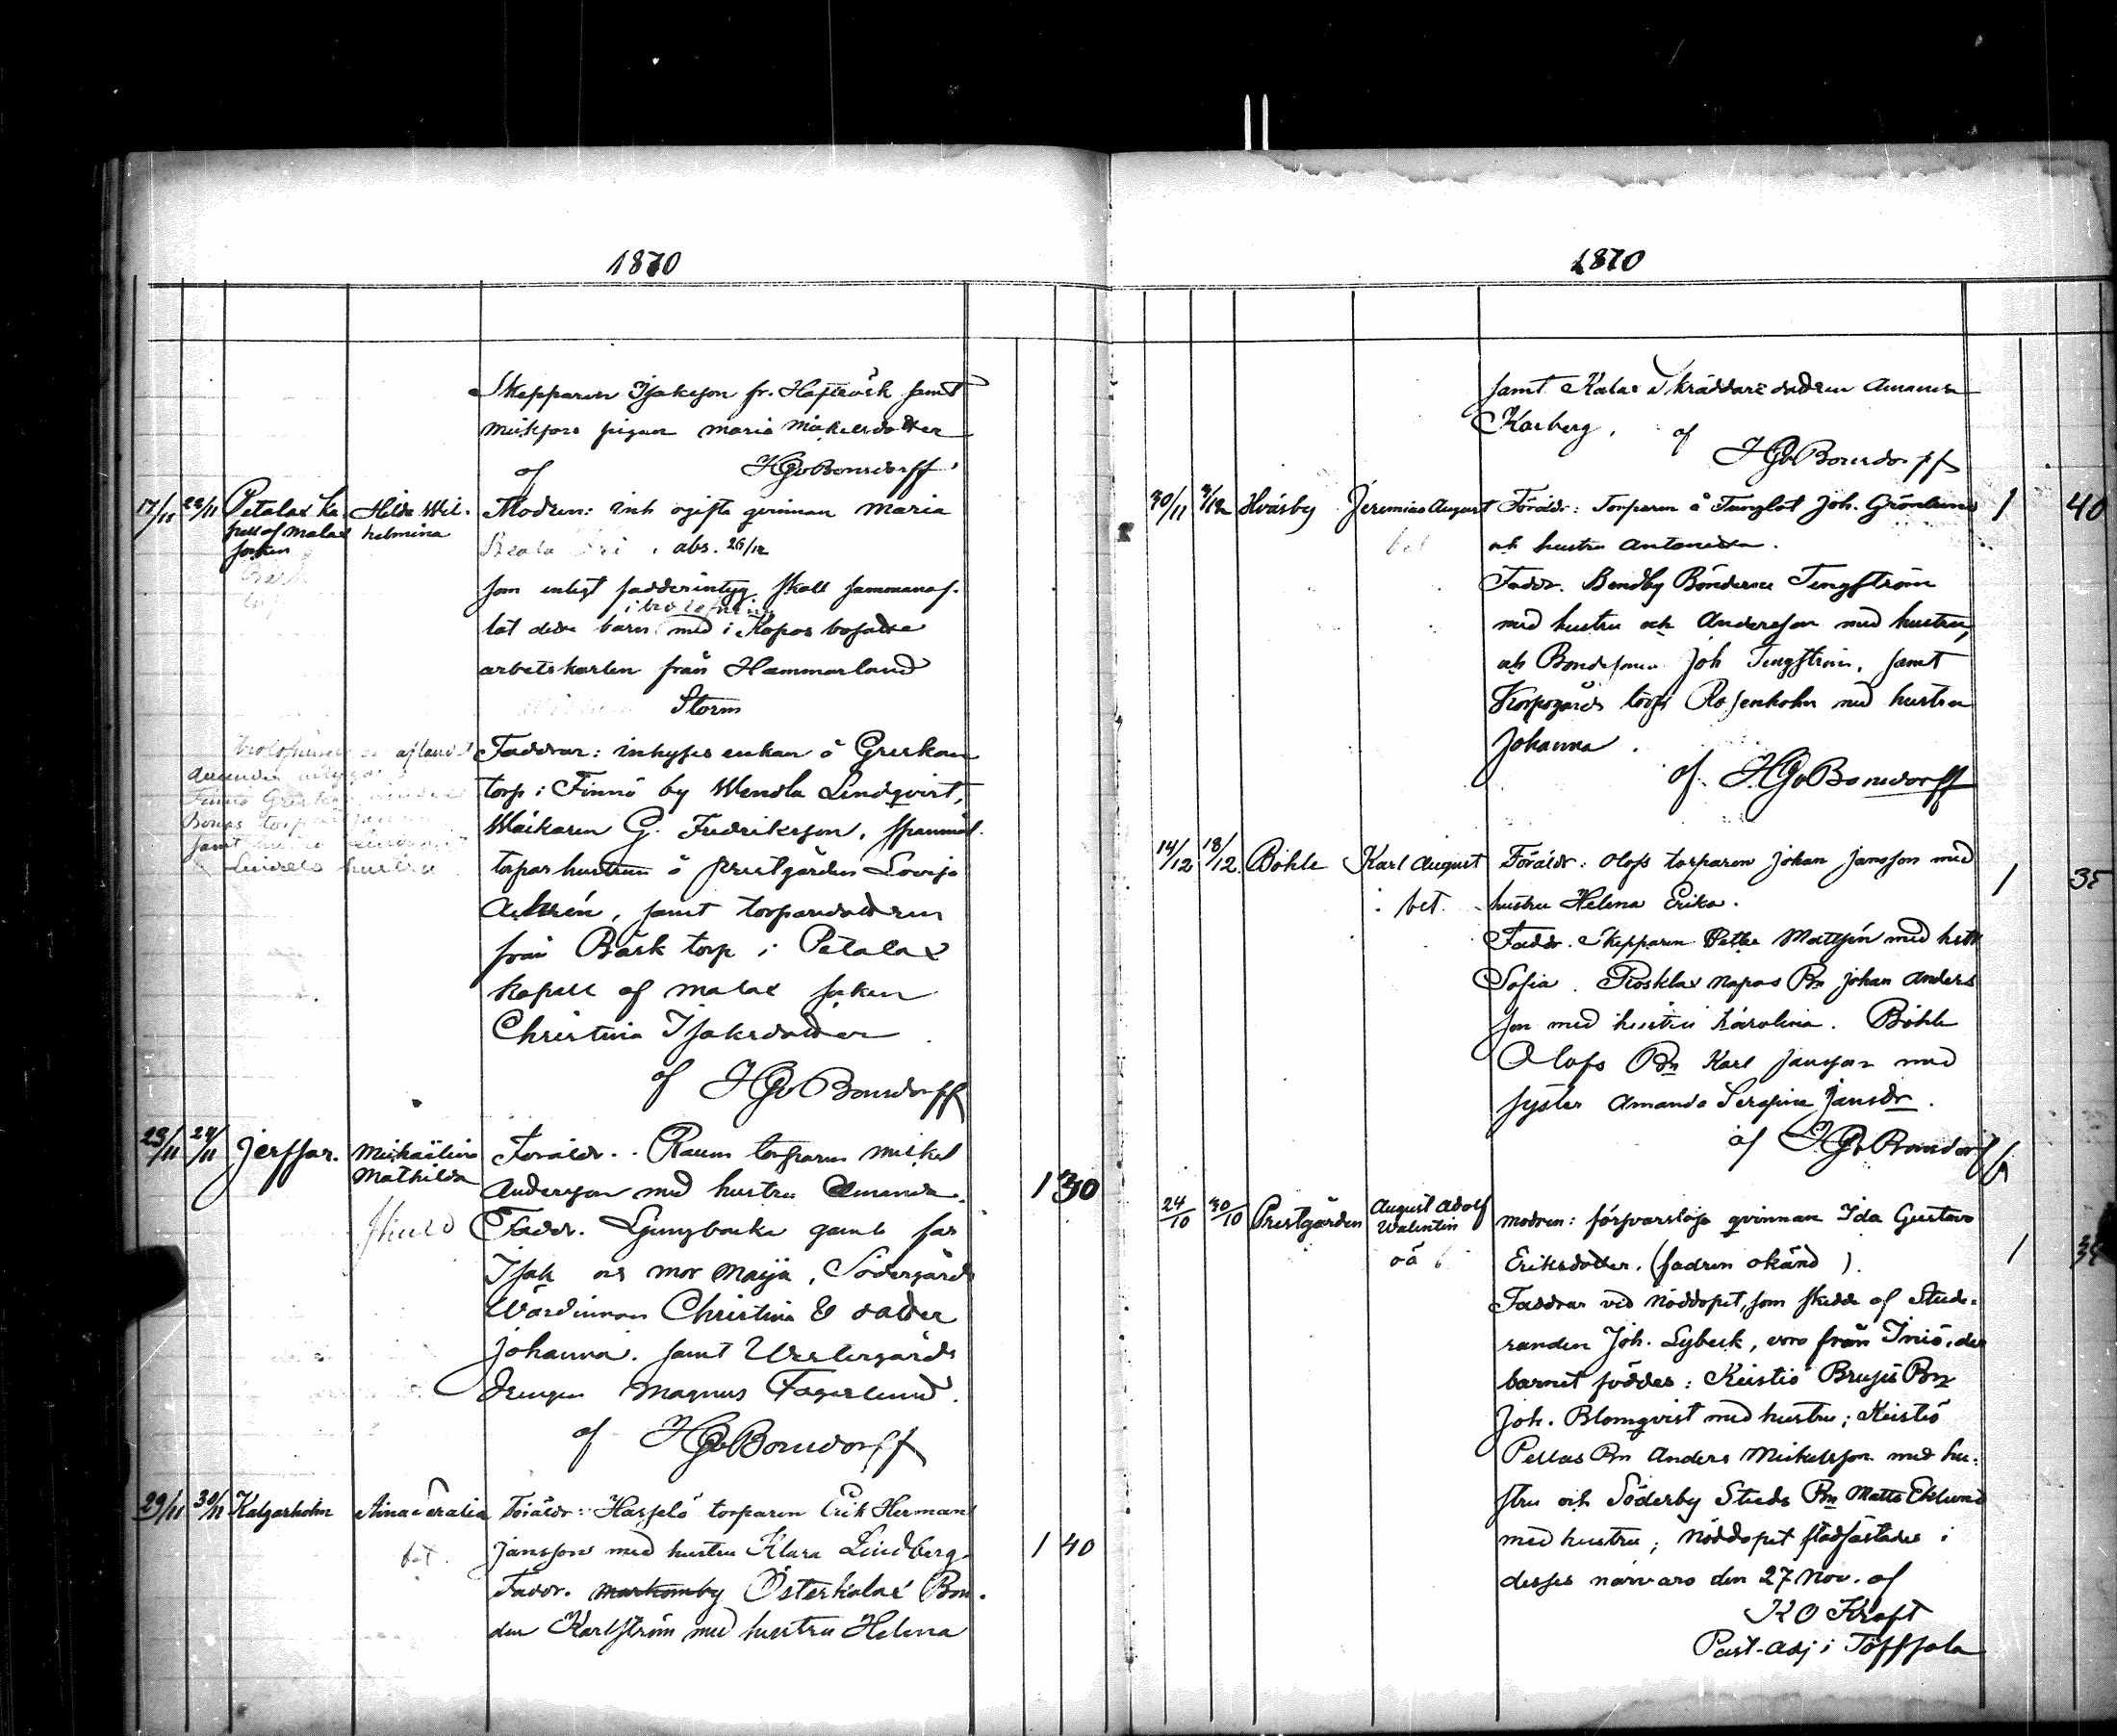 1870
Skepparen Isakson fr. samt
pigan Maria Mickelsdotter
af HGvBonsdorff
17/11 22/11 Petalax ka- Hilda Wil- Modren: inh ogifta qvinnan Maria
pell af Malax helmina Beata abs. 26/12
socken
som enligt fadderintyg skall sammanaf-
i trolofning
lat detta barn med i Kapos bosatte
arbetskarlen från Hammarland
Storm
Faddrar: inhyses enkan å
torp i Finnö by Wendla Lindqvist,
G. Fredriksson,
torparhustrun å prestgården Lovisa
samt torparedottren
från Bäsk torp i Petalax
kapell af Malax socken
Christina Isaksdotter
af HGvBonsdorff
23/11 24/11 Jerssar. Mikaelina Föräldr. Raum torparen Mickel
Mathilda Andersson med hustru Amanda. 1 30
Faddr. Ljungbacka gamle far
Isak och mor Maija, Södergårds
Wärdinnan Christina & dotter
Johanna. samt Westergårds
drengen Magnus Fagerlund.
af HGvBonsdorff
29/11 30/11 Kalgarholm Aina Föräldr: Hasselö torparen Erik Herman
bet. Jansson med hustru Klara Lindberg 1 40
Faddr. Markomby Österkalax Bon-
den Karlström med hustru Helena
1870
samt Kalax Skräddaredottren Amanda
Karberg. af
HGvBonsdorff
30/11 3/12 Hväsby Jeremias August Föräldr: Torparen å Tunglot Joh. Grönlund 1 40
bet och hustru Antonetta.
Faddr. Bendby Bönderne Tengström
med hustru och Andersson med hustru,
och Bondesonen Joh Tengström, samt
Korpogårds torp. Rosenholm med hustru
Johanna.
af HGvBonsdorff
14/12 18/12 Böhle Karl August Föräldr: Olofs torparen Johan Jansson med 1 35
bet. hustru Helena Erika.
Faddr. Skepparen Petter Mattsin med hstr
Sofia. Rosklax Napas Bn Johan Anders
son med hustru Karolina. Böhle
Olofs Bn Karl Jansson med
syster Amanda Serafina Jansdr.
af HGvBonsdorff
24/10 30/10 Prestgården August Adolf Modren: försvarslösa qvinnan Ida Gustava 1 35
Walentin
oä Eriksdotter. (fadren okänd).
Faddrar vid Nöddopet, som skedde af Stude-
randen Joh. Lybeck, voro från Iniö, der
barnet föddes: Keistiö Brusis Bn
Joh. Blomqvist med hustru; Keistiö
Pellas Bn Anders Mickelsson med hu-
stru och Söderby Studs Bn Matts Eklund
med hustru; Nöddopet stadfästades i
desses närvaro den 27 Nov. af
K O Kraft
Past. adj i Töfsala